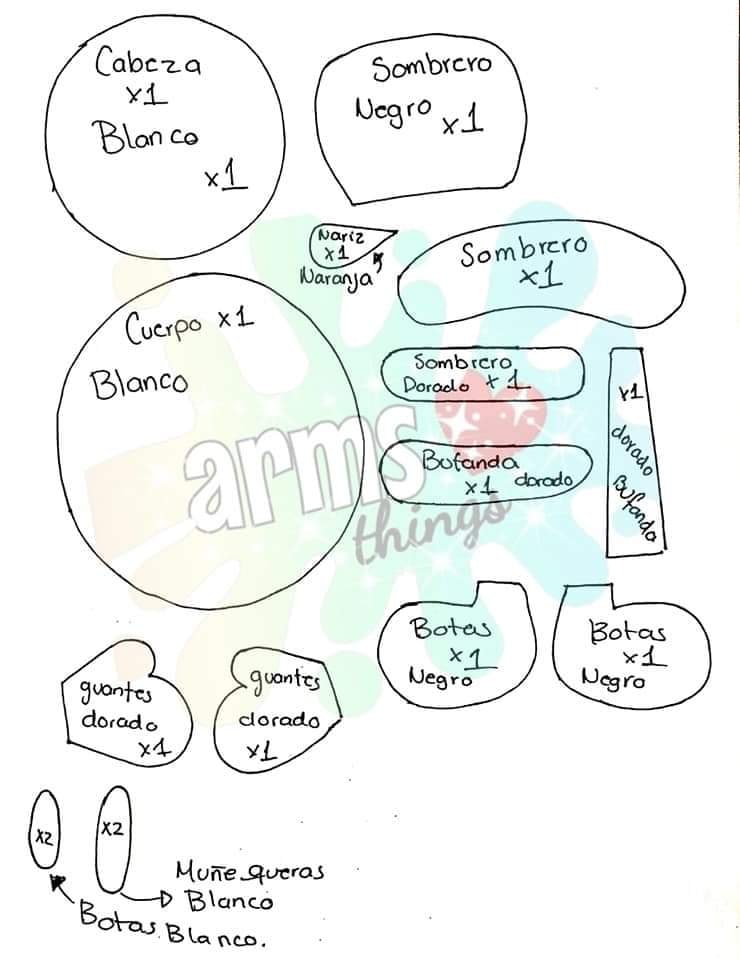 Cabeza
x1
Blanco
x1
Sombrero
Negro x1
Nariz
x1
Naranja
Sombrero
x1
Cuerpo x1
Blanco
Sombrero
Dorado + 1
x1
dorado
Bufanda
Bufanda
x1 dorado
arms
things
Botas
x1
Negro
Botas
x1
Negro
guantes
dorado
x1
guantes
dorado
x1
x2
x2
Muñequeras
Blanco
Botas Blanco.